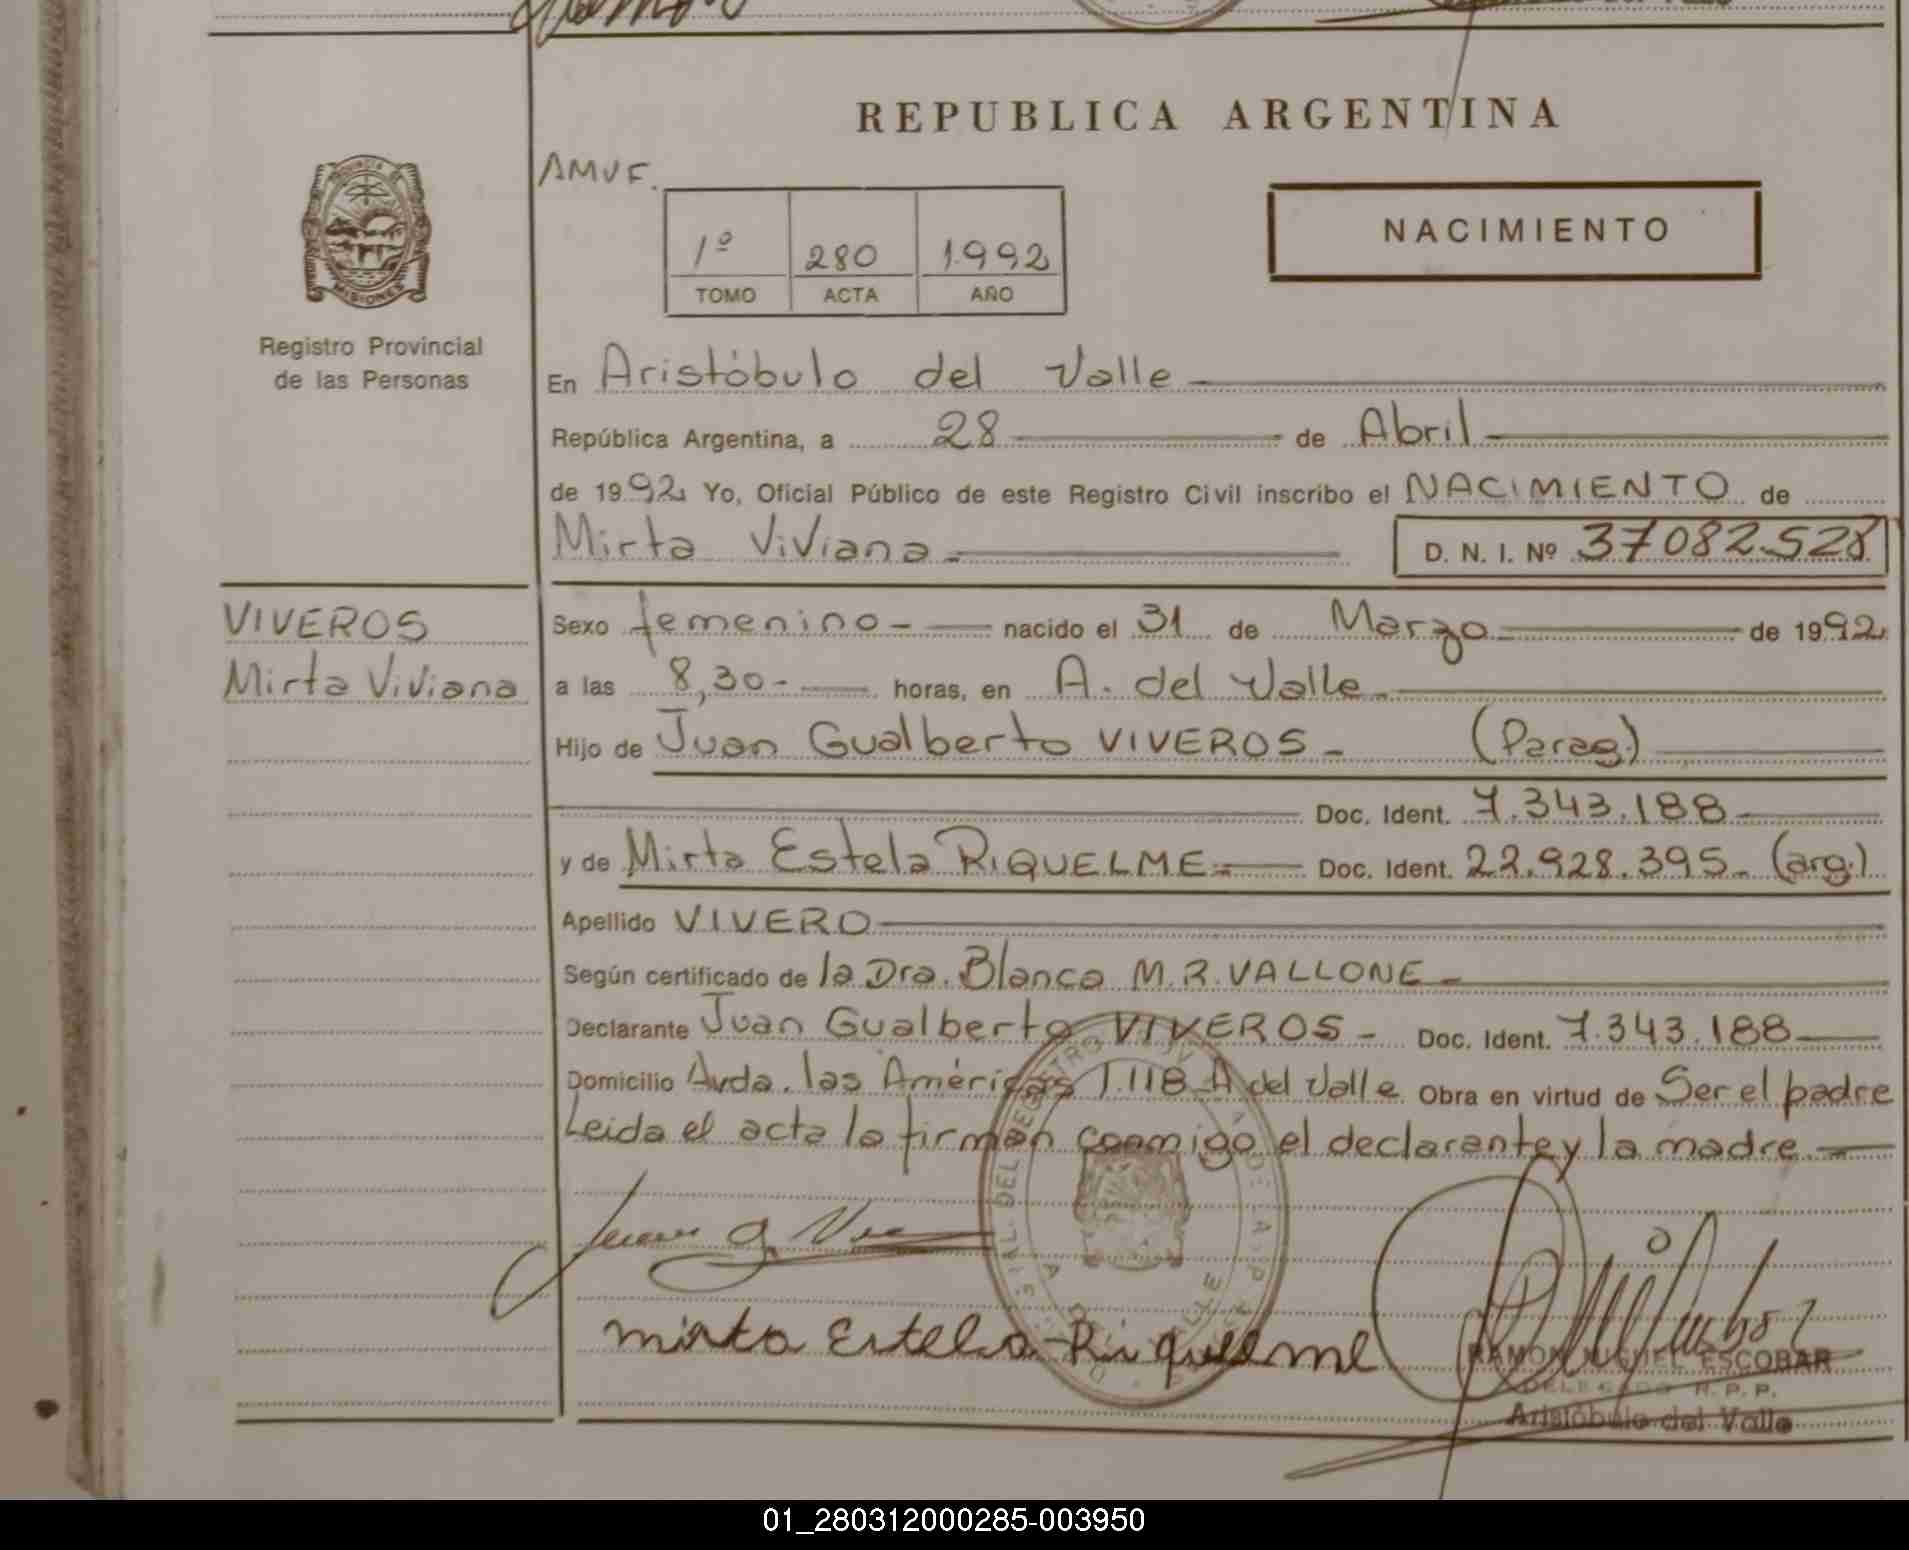 REPUBLICA ARGENTINA
AMVF.
NACIMIENTO
1º 280 1992
TOMO ACTA AÑO
PROVINCIA
MISIONES
Registro Provincial
de las Personas
En Aristóbulo del Valle
República Argentina, a 28 de Abril
de 1992 Yo, Oficial Público de este Registro Civil inscribo el NACIMIENTO de
Mirta Viviana D. N. I. Nº 37082528
VIVEROS
Mirta Viviana
Sexo femenino - nacido el 31 de Marzo de 1992
a las 8,30- horas, en A. del Valle
Hijo de Juan Gualberto VIVEROS - (Parag.)
Doc. Ident. 7.343.188
y de Mirta Estela RIQUELME = Doc. Ident. 22.928.395- (arg.)
Apellido VIVERO
Según certificado de la Dra. Blanca M.R. VALLONE -
Declarante Juan Gualberto VIVEROS - Doc. Ident. 7.343.188
Domicilio Avda. las Américas 1.118 A del Valle Obra en virtud de Ser el padre
Leida el acta la firman conmigo el declarante y la madre.
Mirta Estela Riquelme
RAMON MIGUEL ESCOBAR
DELEGADO R.P.P.
Aristóbulo del Valle
01_280312000285-003950